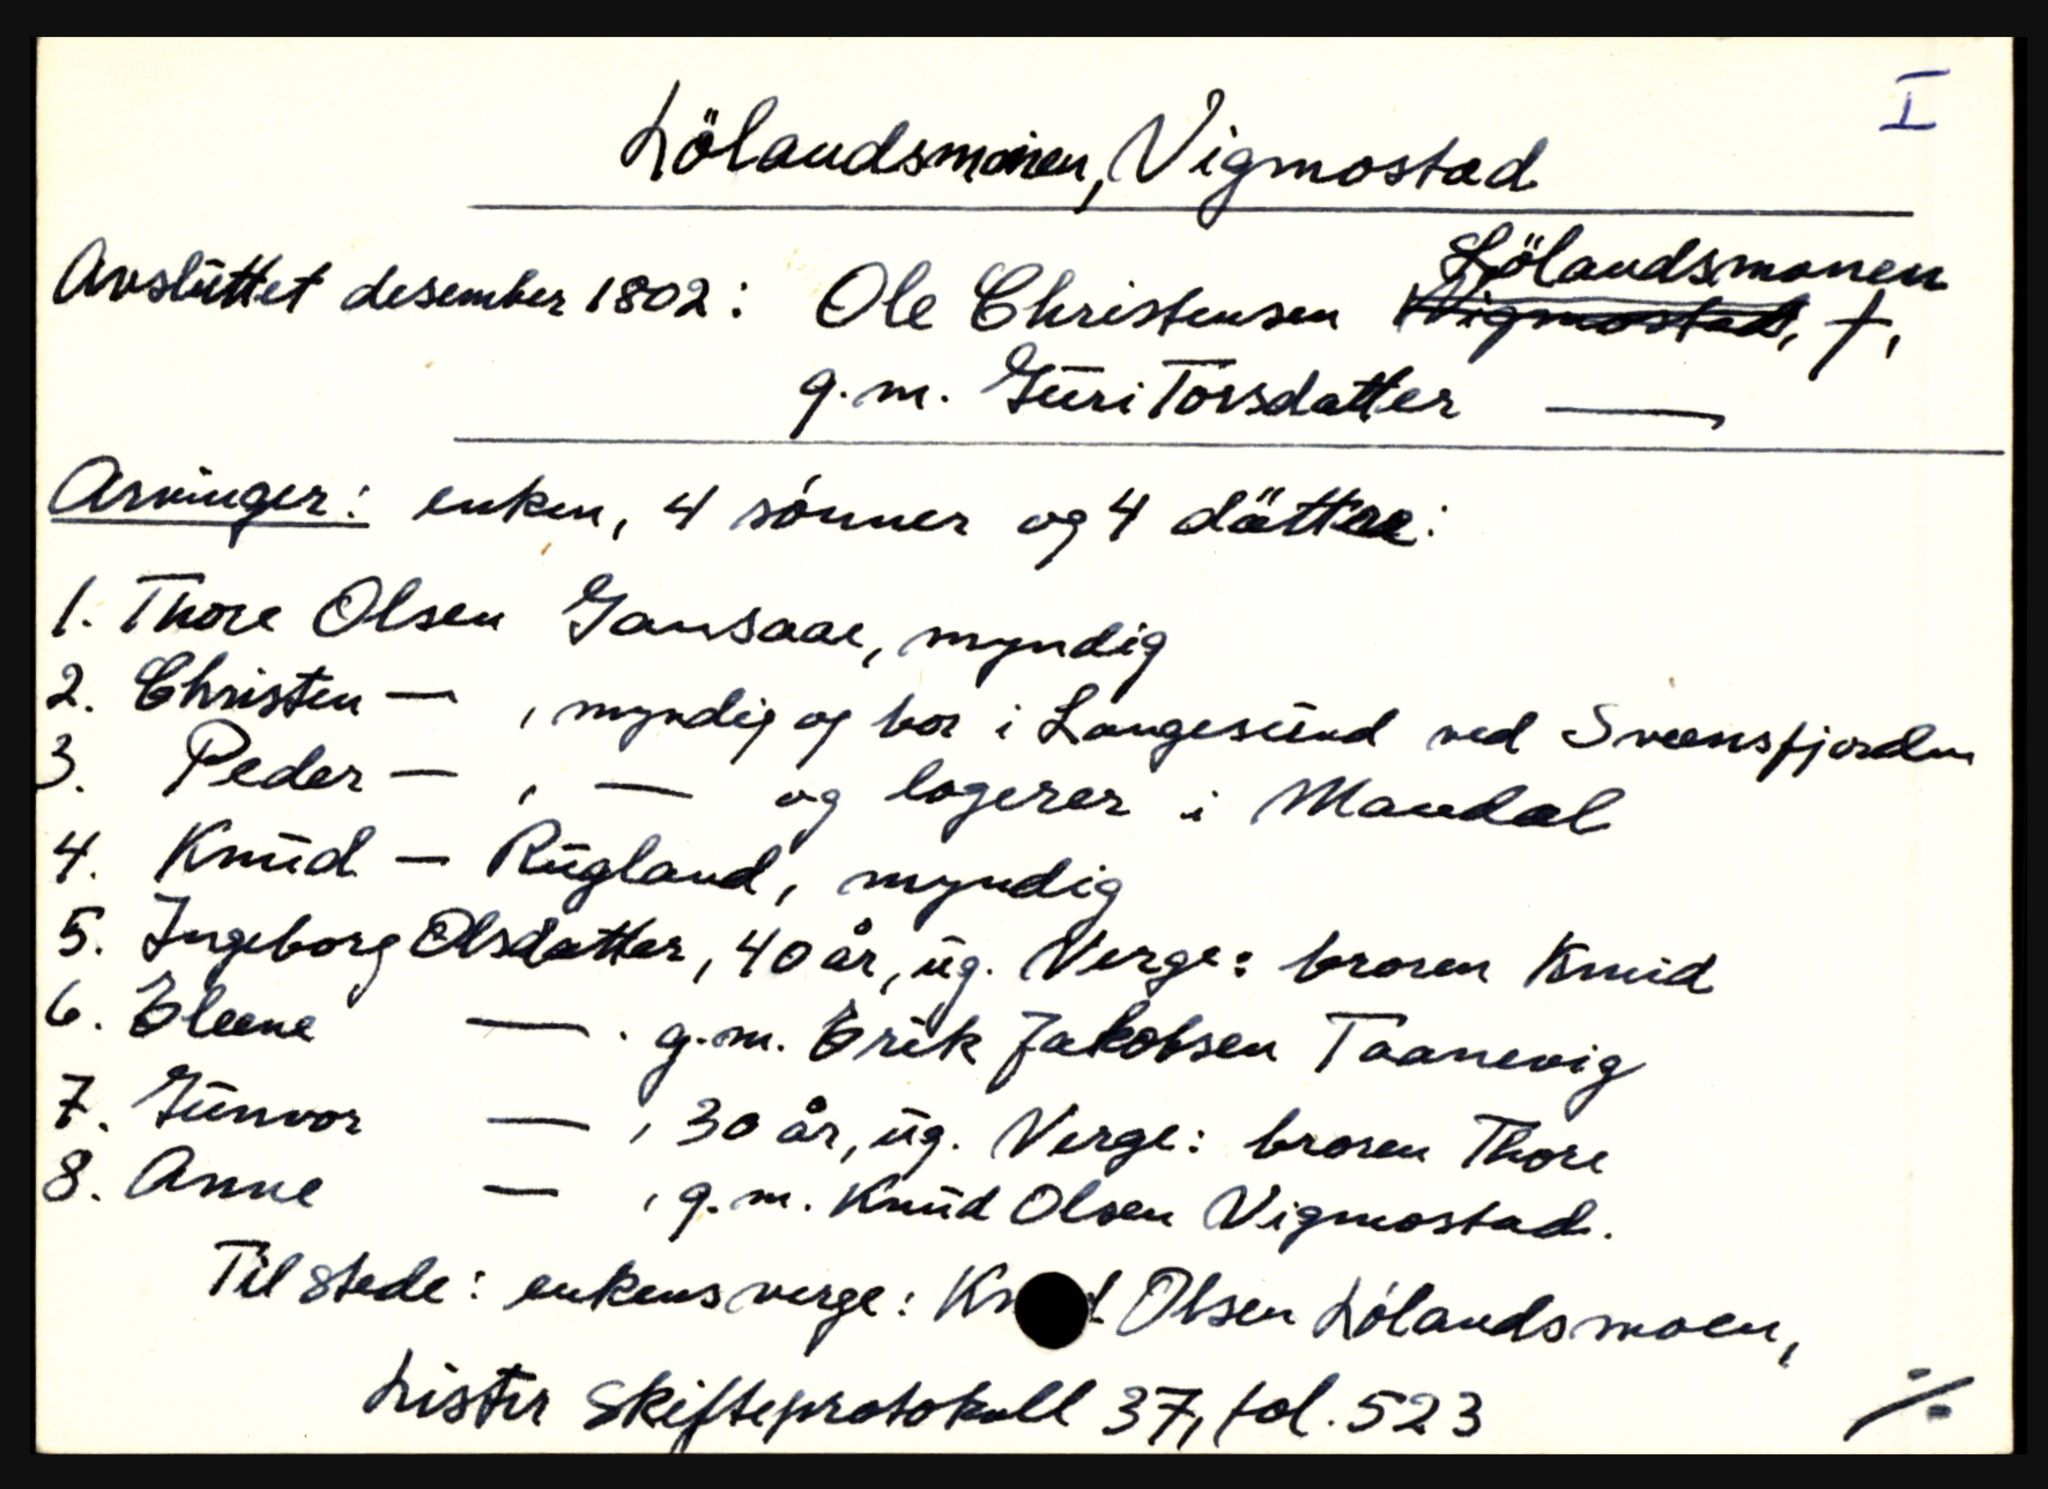 I
Lölandsmonen, Vigmostad
Lölandsmonen
Avsluttet desember 1802: Ole Christensen Vigmostad, †,
g.m. Guri Torsdatter —
Arvinger: enken, 4 sønner og 4 döttre:
1. Thore Olsen Gausaae, myndig
2. Christen — , myndig og bor i Langesund ved Svensfjorden
3. Peder — , — og logerer i Mandal
4. Knud — Rugland, myndig
5. Ingeborg Olsdatter, 40 år, ug. Verge: broren Knud
6. Eleene — . g.m. Erik Jakobsen Taanevig
7. Gunvor — , 30 år, ug. Verge: broren Thore
8. Anne — , g.m. Knud Olsen Vigmostad.
Til stede: enkens verge: Kn d Olsen Lølandsmoen,
Lister skifteprotokoll 37, fol. 523
·/·